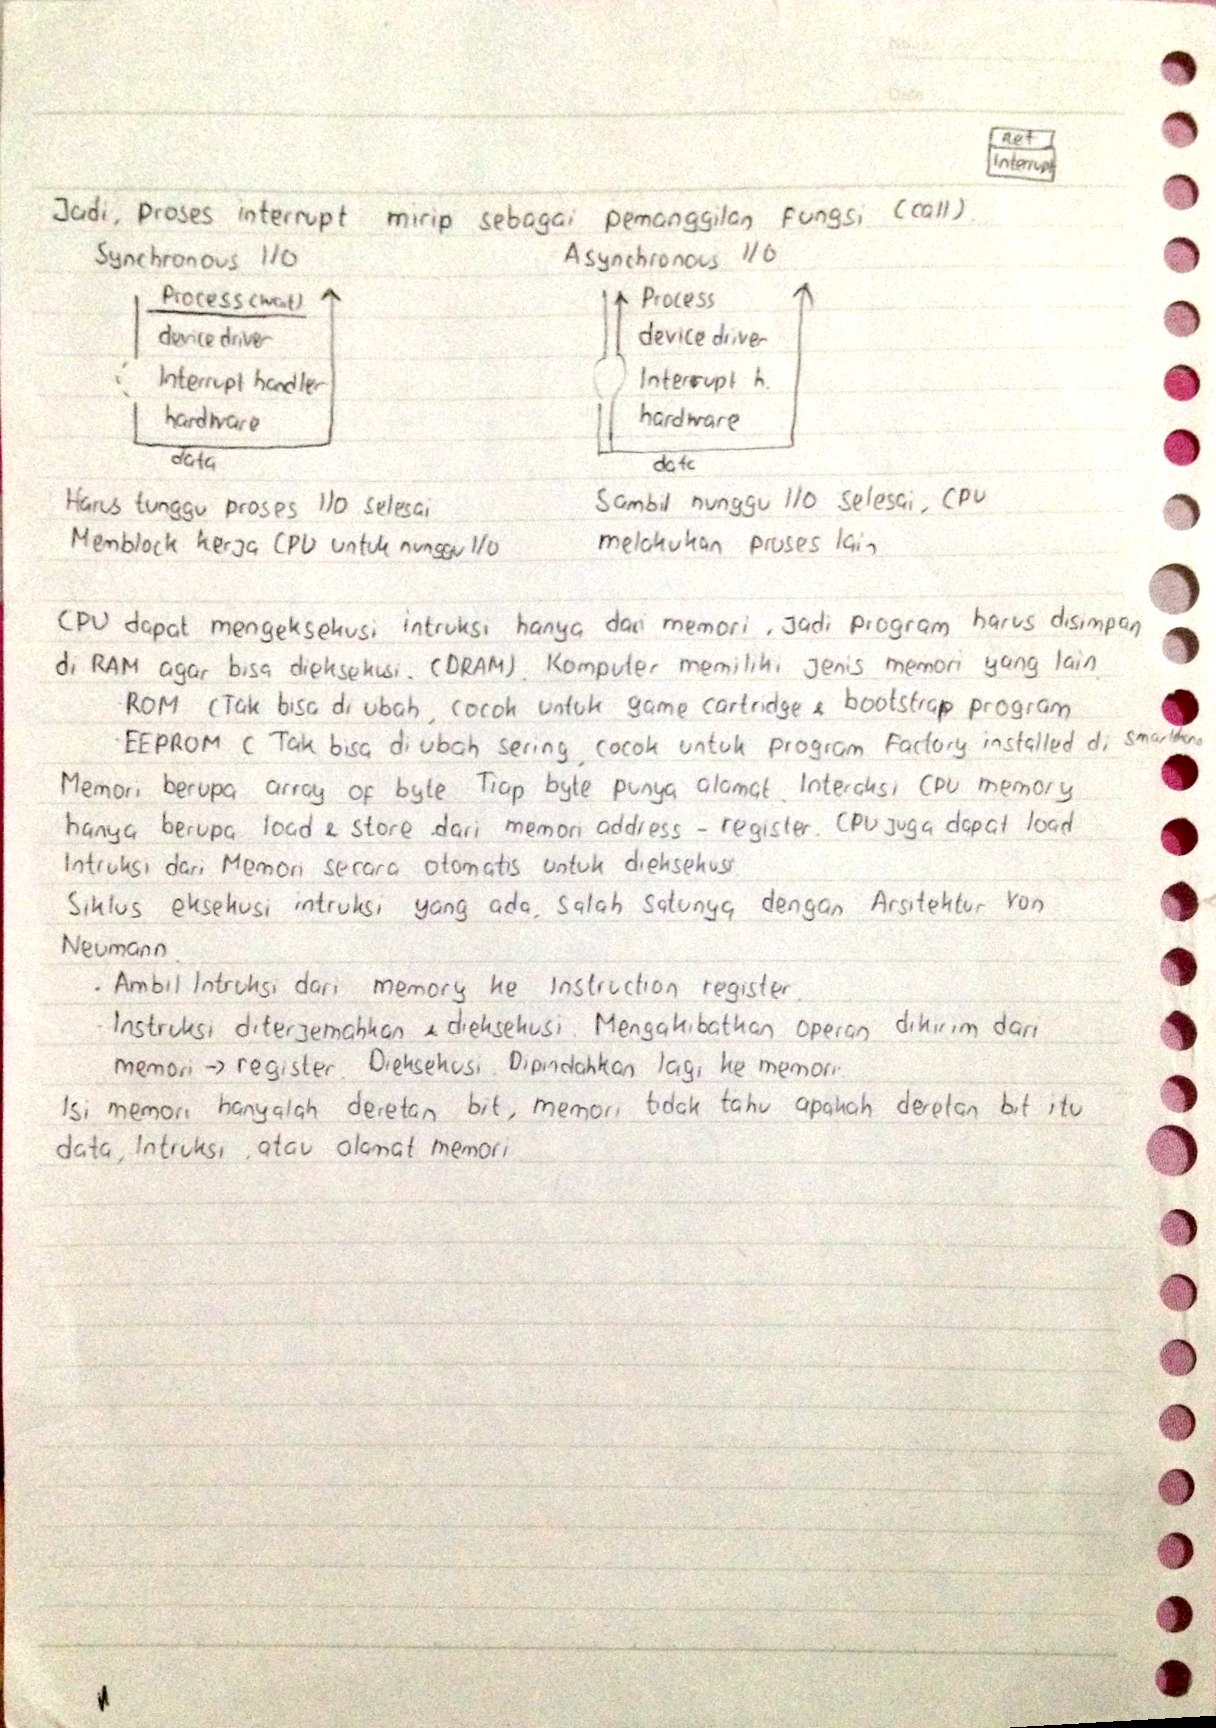 No.
Date
ret
Interrupt
Jadi, proses interrupt mirip sebagai pemanggilan fungsi (call).
Synchronous I/O
Process (wait)
device driver
Interrupt handler
hardware
data
Harus tunggu proses I/O selesai
Memblock kerja CPU untuk nunggu I/O
Asynchronous I/O
Process
device driver
Interrupt h.
hardware
data
Sambil nunggu I/O selesai, CPU
melakukan proses lain
CPU dapat mengeksekusi intruksi hanya dari memori, jadi program harus disimpan
di RAM agar bisa dieksekusi. (DRAM). Komputer memiliki jenis memori yang lain
· ROM (Tak bisa di ubah, cocok untuk game cartridge & bootstrap program
· EEPROM ( Tak bisa di ubah sering, cocok untuk program Factory installed di
Memori berupa array of byte Tiap byte punya alamat. Interaksi CPU memory
hanya berupa load & store dari memori address - register. CPU juga dapat load
Intruksi dari Memori secara otomatis untuk dieksekusi
Siklus eksekusi intruksi yang ada, salah satunya dengan Arsitektur Von
Neumann.
· Ambil Intruksi dari memory ke Instruction register.
· Instruksi diterjemahkan & dieksekusi. Mengakibatkan operan dikirim dari
memori -> register. Dieksekusi. Dipindahkan lagi ke memori.
Isi memori hanyalah deretan bit, memori tidak tahu apakah deretan bit itu
data, Intruksi, atau alamat memori